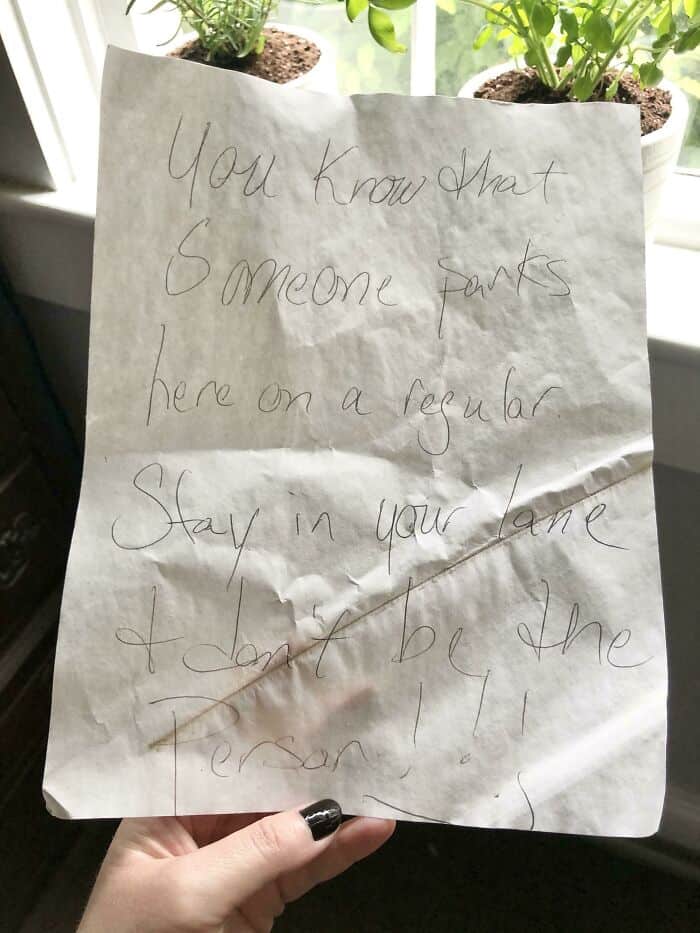 You Know that
Someone parks
here on a regular.
Stay in your lane
+ don't be the
Person!!!